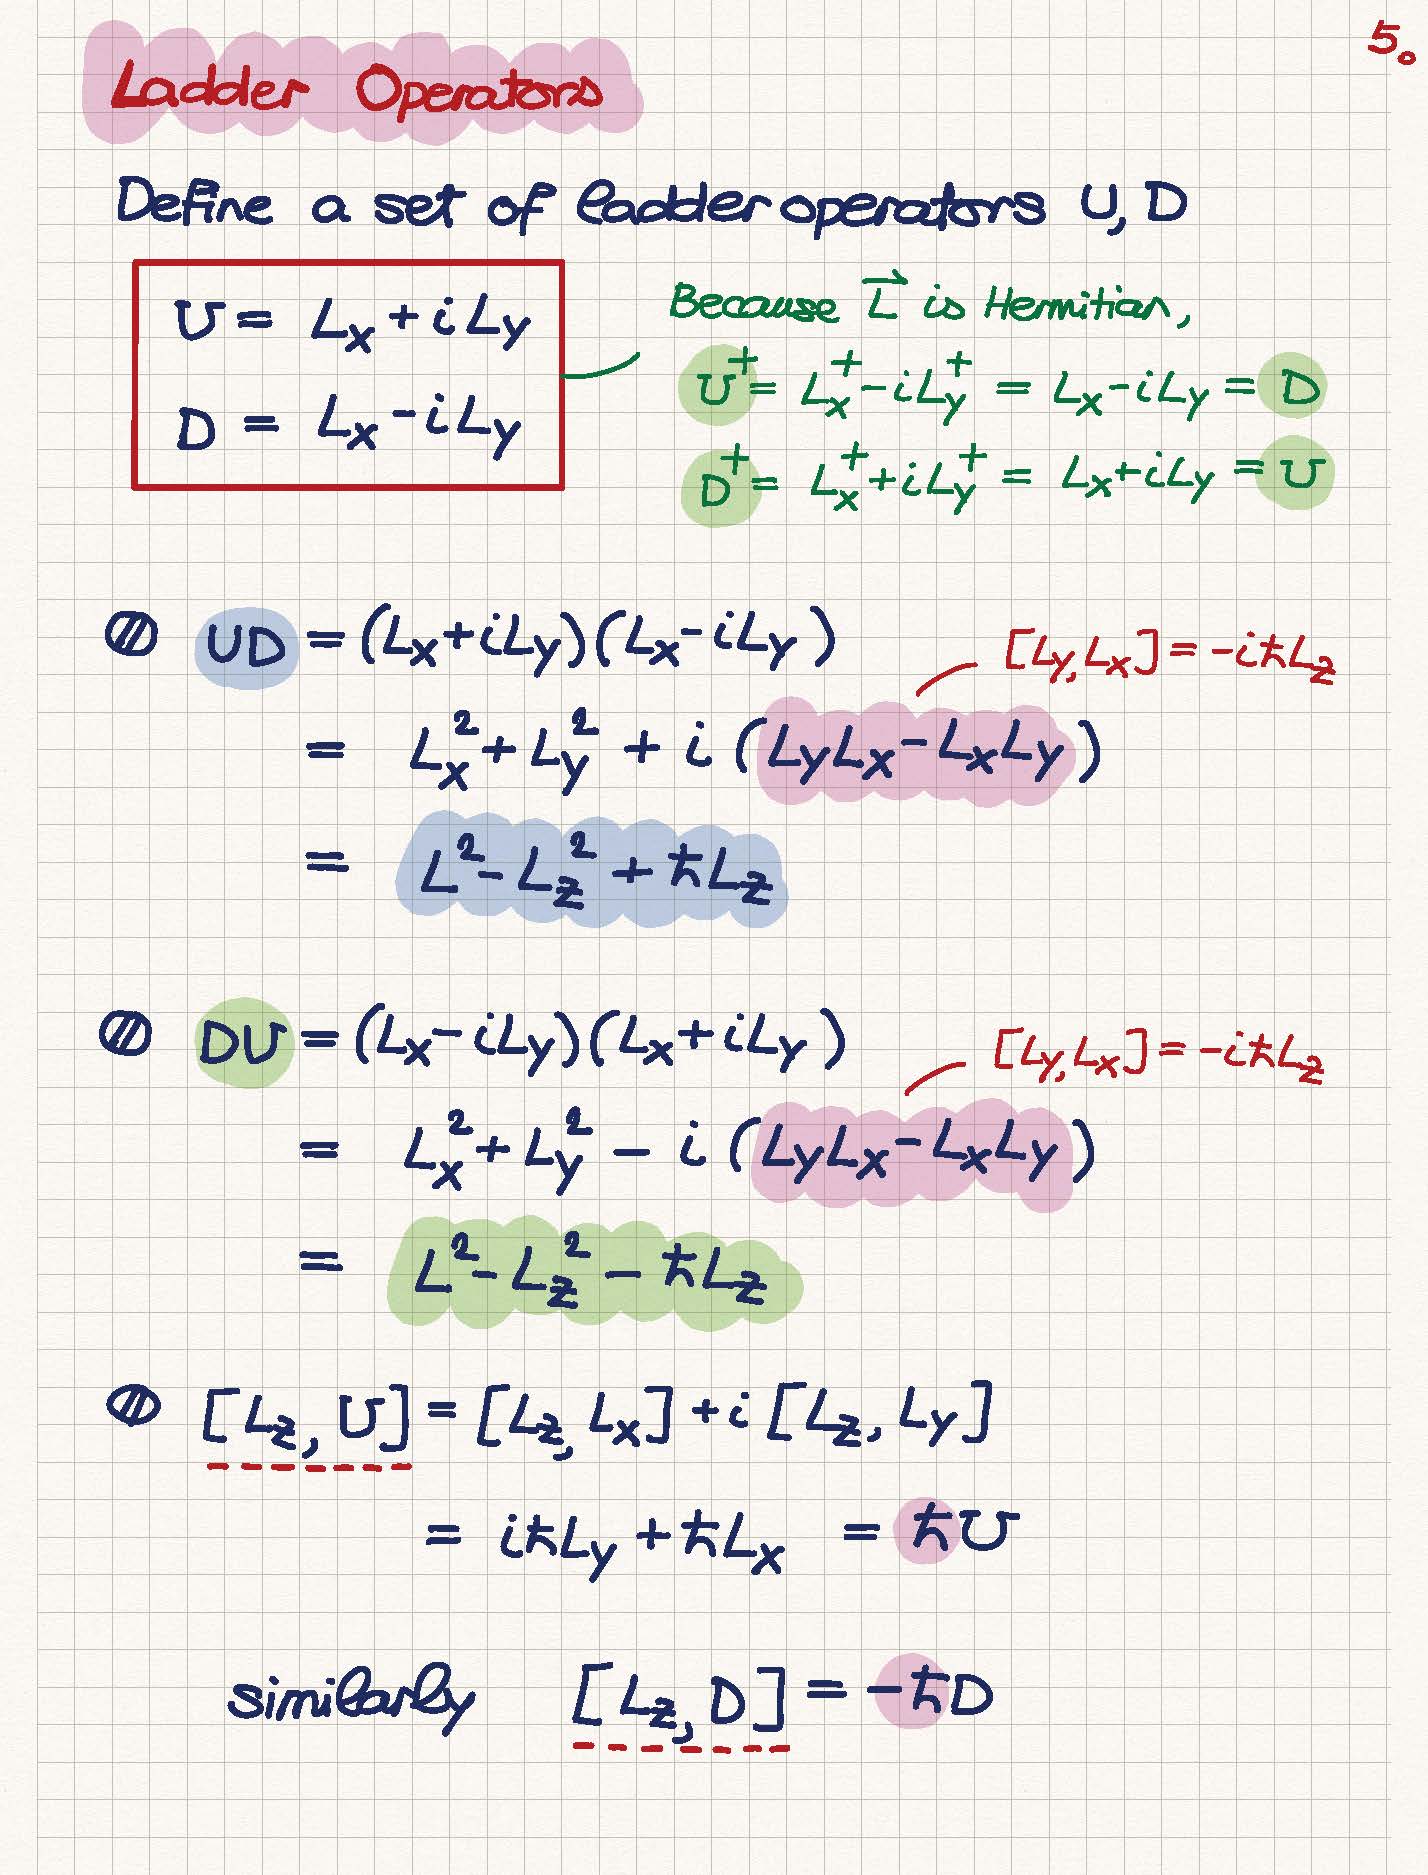 5.
Ladder Operators
Define a set of ladder operators U, D
U = Lₓ + i L_y
D = Lₓ - i L_y
Because L⃗ is Hermitian,
U⁺ = Lₓ⁺ - i L_y⁺ = Lₓ - i L_y = D
D⁺ = Lₓ⁺ + i L_y⁺ = Lₓ + i L_y = U
UD = (Lₓ + i L_y)(Lₓ - i L_y)
[L_y, Lₓ] = -iħL_z
= Lₓ² + L_y² + i (L_y Lₓ - Lₓ L_y)
= L² - L_z² + ħL_z
DU = (Lₓ - i L_y)(Lₓ + i L_y)
[L_y, Lₓ] = -iħL_z
= Lₓ² + L_y² - i (L_y Lₓ - Lₓ L_y)
= L² - L_z² - ħL_z
[L_z, U] = [L_z, Lₓ] + i [L_z, L_y]
= iħL_y + ħLₓ = ħU
similarly [L_z, D] = -ħD